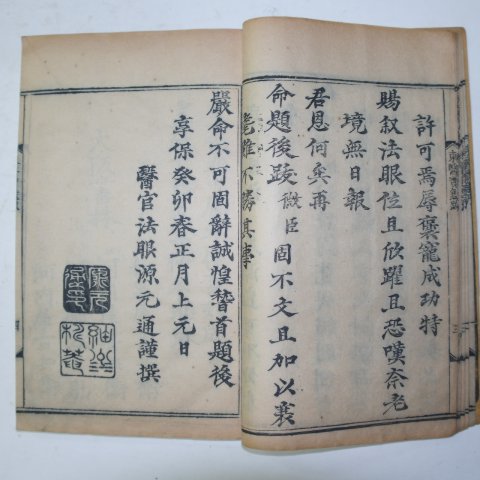 許可焉辱褒寵成功特
賜叙法眼位且欣躍且恐嘆奈老
境無日報
君恩何矣再
命題後跋微臣固不文且加以衰
耄雖不勝其
嚴命不可固辭誠惶誓首題後
享保癸卯春正月上元日
醫官法眼源元通謹撰